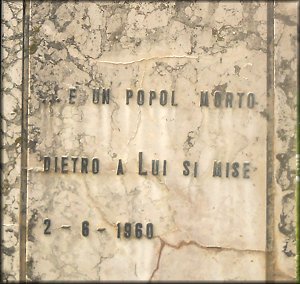 ..E UN POPOL MORTO
DIETRO A LUI SI MISE
2 - 6 - 1960